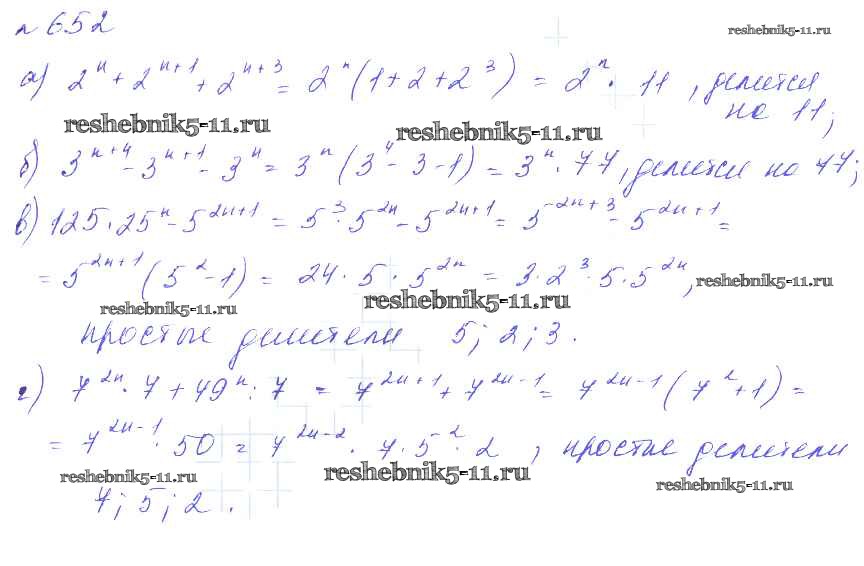 № 652
reshebnik5-11.ru
а) 2ⁿ + 2ⁿ⁺¹ + 2ⁿ⁺³ = 2ⁿ(1 + 2 + 2³) = 2ⁿ · 11, делится
на 11;
reshebnik5-11.ru reshebnik5-11.ru
б) 3ⁿ⁺⁴ - 3ⁿ⁺¹ - 3ⁿ = 3ⁿ(3⁴ - 3 - 1) = 3ⁿ · 77, делится на 77;
в) 125 · 25ⁿ - 5²ⁿ⁺¹ = 5³ · 5²ⁿ - 5²ⁿ⁺¹ = 5²ⁿ⁺³ - 5²ⁿ⁺¹ =
= 5²ⁿ⁺¹(5² - 1) = 24 · 5 · 5²ⁿ = 3 · 2³ · 5 · 5²ⁿ,
reshebnik5-11.ru
reshebnik5-11.ru reshebnik5-11.ru
простые делители 5; 2; 3.
г) 7²ⁿ · 7 + 49ⁿ : 7 = 7²ⁿ⁺¹ + 7²ⁿ⁻¹ = 7²ⁿ⁻¹(7² + 1) =
= 7²ⁿ⁻¹ · 50 = 7²ⁿ⁻² · 7 · 5² · 2, простые делители
reshebnik5-11.ru reshebnik5-11.ru reshebnik5-11.ru
7; 5; 2.